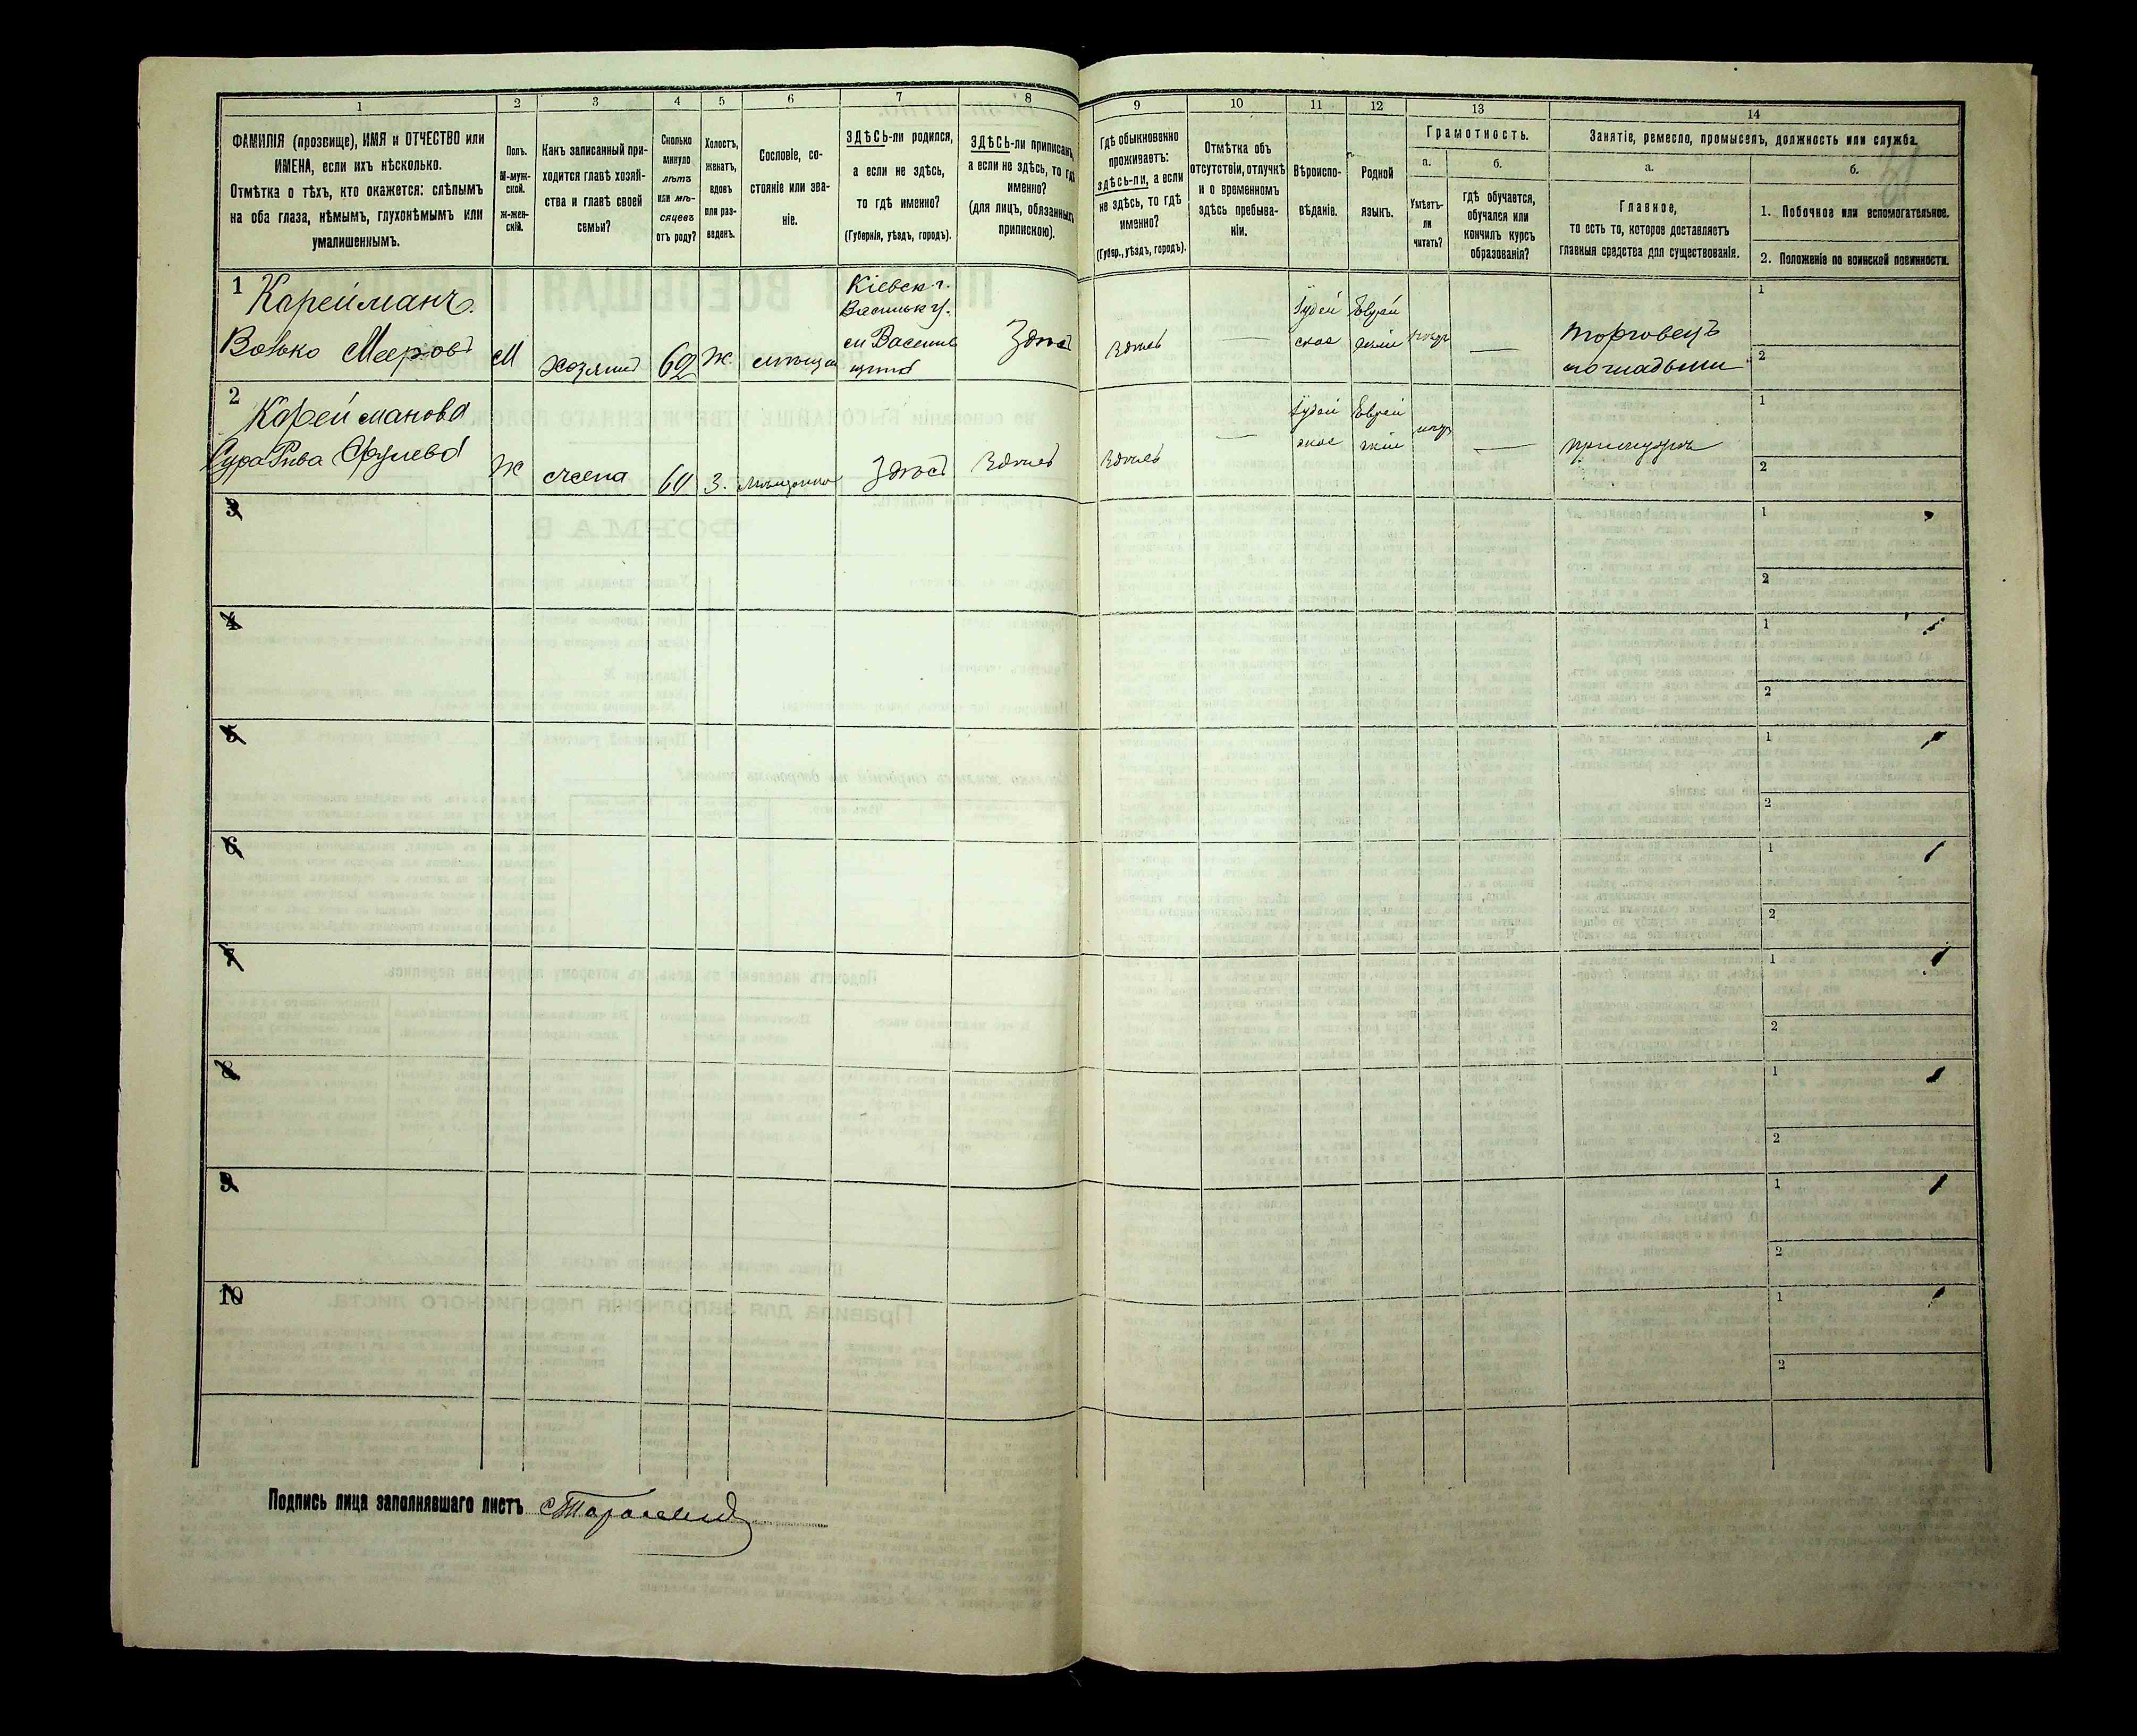 1
2
3
4
5
6
7
8
9
10
11
12
13
14
ФАМИЛІЯ (прозвище), ИМЯ и ОТЧЕСТВО или
ИМЕНА, если ихъ нѣсколько.
Отмѣтка о тѣхъ, кто окажется: слѣпымъ
на оба глаза, нѣмымъ, глухонѣмымъ или
умалишеннымъ.
Полъ.
М-муж-
ской.
Ж-жен-
скій.
Какъ записанный при-
ходится главѣ хозяй-
ства и главѣ своей
семьи?
Сколько
минуло
лѣтъ
или мѣ-
сяцевъ
отъ роду?
Холостъ,
женатъ,
вдовъ
или раз-
веденъ.
Сословіе, со-
стояніе или зва-
ніе.
ЗДѢСЬ-ли родился,
а если не здѣсь,
то гдѣ именно?
(Губернія, уѣздъ, городъ).
ЗДѢСЬ-ли приписанъ,
а если не здѣсь, то гдѣ
именно?
(для лицъ, обязанныхъ
припискою).
Гдѣ обыкновенно
проживаетъ:
здѣсь-ли, а если
не здѣсь, то гдѣ
именно?
(Губер., уѣздъ, городъ).
Отмѣтка объ
отсутствіи, отлучкѣ
и о временномъ
здѣсь пребыва-
ніи.
Вѣроиспо-
вѣданіе.
Родной
языкъ.
Грамотность.
а.
б.
Умѣетъ-
ли
читать?
гдѣ обучается,
обучался или
кончилъ курсъ
образованія?
Занятіе, ремесло, промыселъ, должность или служба.
а.
б.
Главное,
то есть то, которое доставляетъ
главныя средства для существованія.
1. Побочное или вспомогательное.
2. Положеніе по воинской повинности.
1
Карейманъ
Волько Мееровъ
М
хозяинъ
62
Ж.
мѣщан
Кіевск. г.
Васильк. у.
Здѣсь
Здѣсь
—
Іудей
ское
Еврей
скій
—
торговецъ
лошадьми
1
2
2
Карейманова
Сура Рива Срулева
Ж
жена
60
З.
мѣщанка
Здѣсь
Здѣсь
Здѣсь
—
Іудей
ское
Еврей
скій
—
при мужѣ
1
2
3
1
2
4
1
2
5
1
2
6
1
2
7
1
2
8
1
2
9
1
2
10
1
2
Подпись лица заполнявшаго листъ